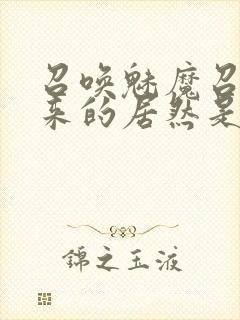 召唤魅魔召
来的居然是
錦之玉液